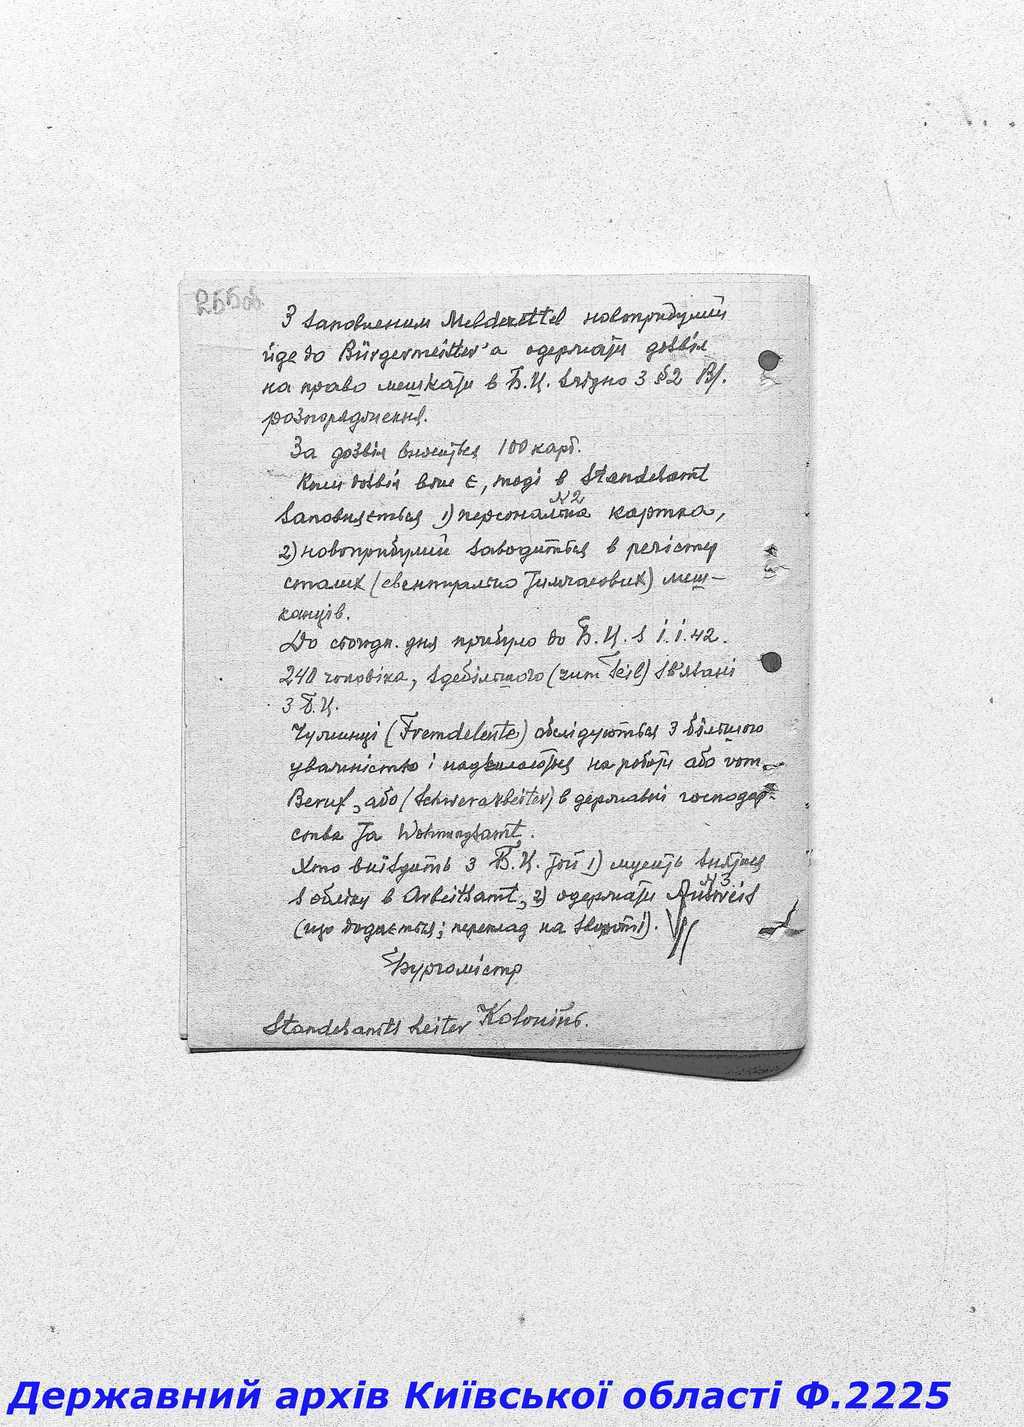 255об.
З заповненим Meldezettel новоприбулий
йде до Bürgermeister'а одержати дозвіл
на право мешкати в Б.Ц. згідно з §2 Bf.
розпорядження.
За дозвіл вноситься 100 карб.
Коли дозвіл вже є, тоді в Standesamt
заповняється 1) персональна №2 картка,
2) новоприбулий заводиться в реєстер
сталих (евентуально тимчасових) меш-
канців.
До сьогодн. дня прибуло до Б.Ц. з 1.1.42.
240 чоловіка, здебільшого (zum Teil) зв'язані
з Б.Ц.
Чужинці (Fremdeleute) обслідуються з більшою
уважністю і надсилаються на роботи або vom
Beruf, або (Schwerarbeiter) в державні господар-
ства та Wohnungsamt.
Хто виїздить з Б.Ц. той 1) мусить знятися
з обліку в Arbeitsamt, 2) одержати №3 Ausweis
(що додається; переклад на звороті).
Бургомістр
Standesamts Leiter
Державний архів Київської області Ф.2225